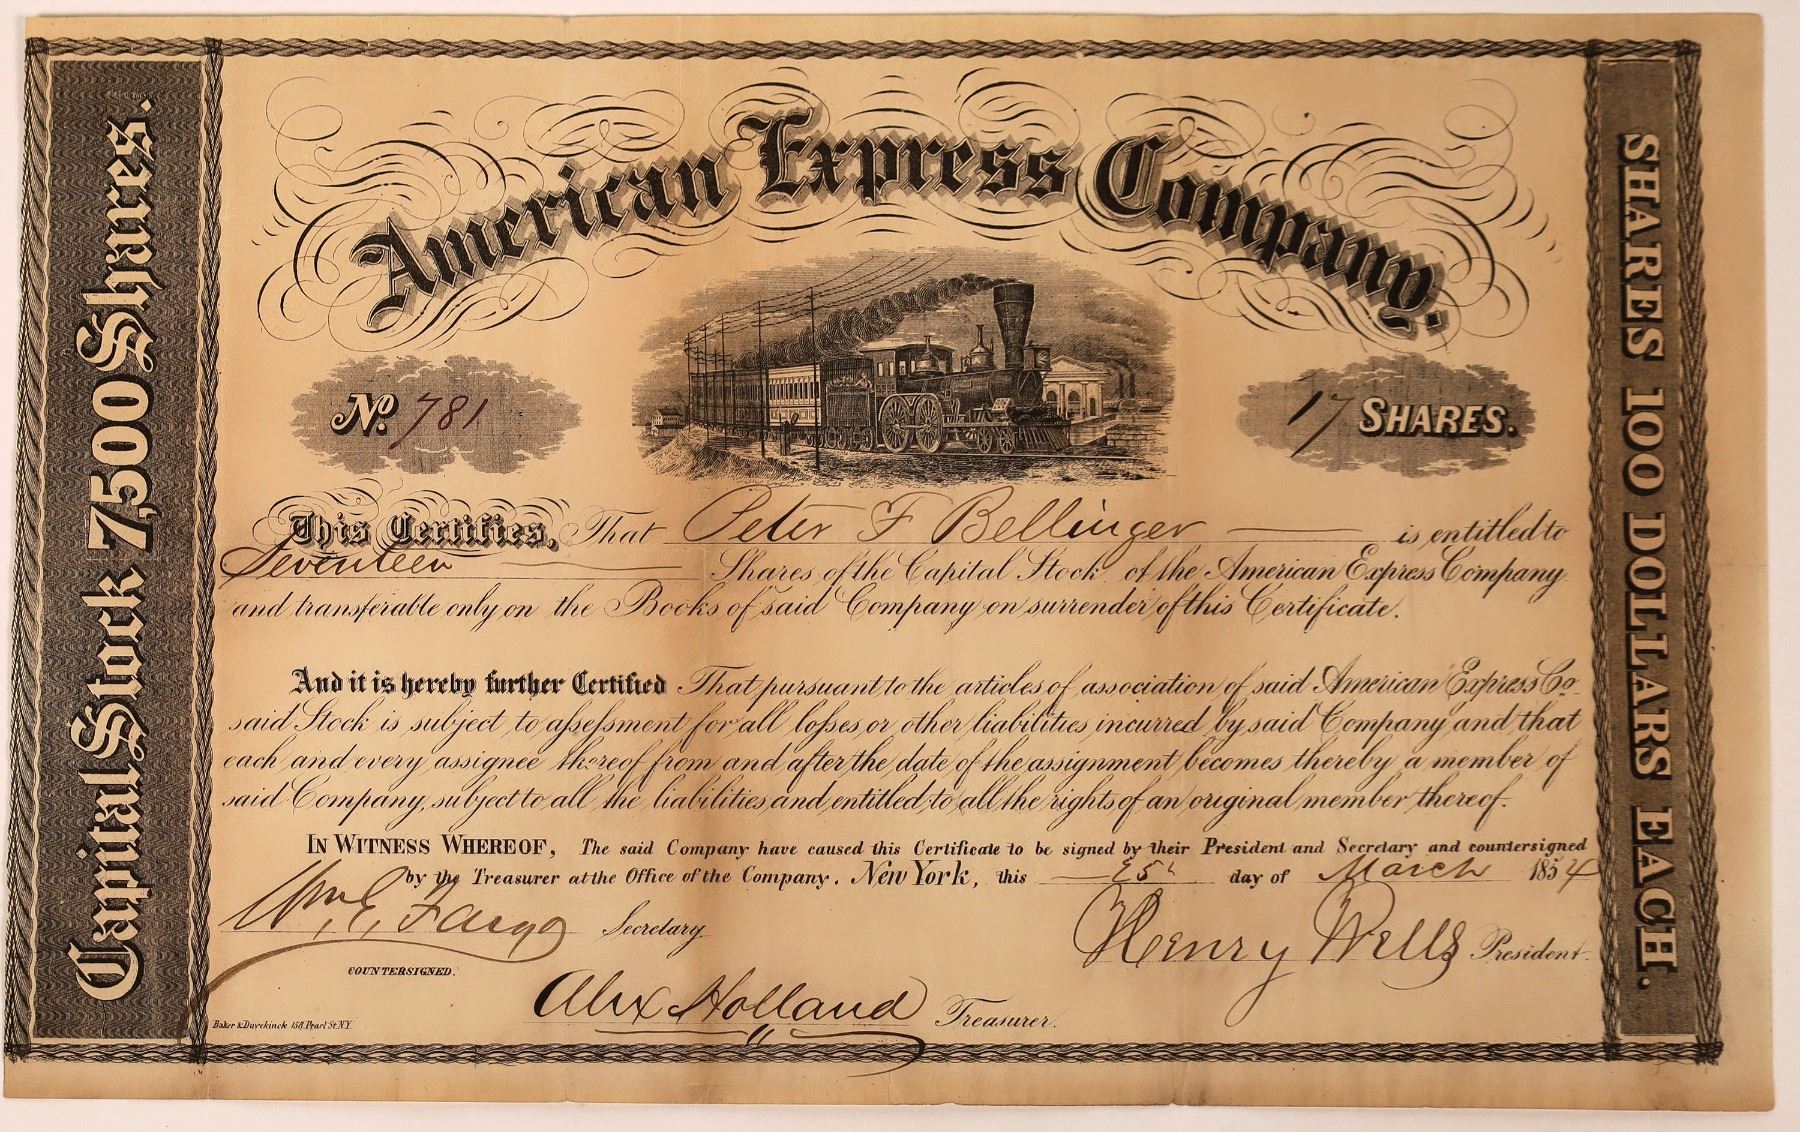 American Express Company.
Capital Stock 7,500 Shares.
No. 781
17 SHARES.
This Certifies, That Peter F Bellinger is entitled to
Seventeen Shares of the Capital Stock of the American Express Company
and transferable only on the Books of said Company on surrender of this Certificate.
And it is hereby further Certified That pursuant to the articles of association of said American Express Co
said Stock is subject to assessment for all losses or other liabilities incurred by said Company and that
each and every assignee thereof from and after the date of the assignment becomes thereby a member of
said Company, subject to all the liabilities and entitled to all the rights of an original member thereof.
IN WITNESS WHEREOF, The said Company have caused this Certificate to be signed by their President and Secretary and countersigned
by the Treasurer at the Office of the Company. New York, this day of March 1854
Wm. G. Fargo Secretary.
Henry Wells President.
COUNTERSIGNED.
Alex Holland Treasurer.
Baker & Duyckinck 158, Pearl St. N.Y.
SHARES 100 DOLLARS EACH.